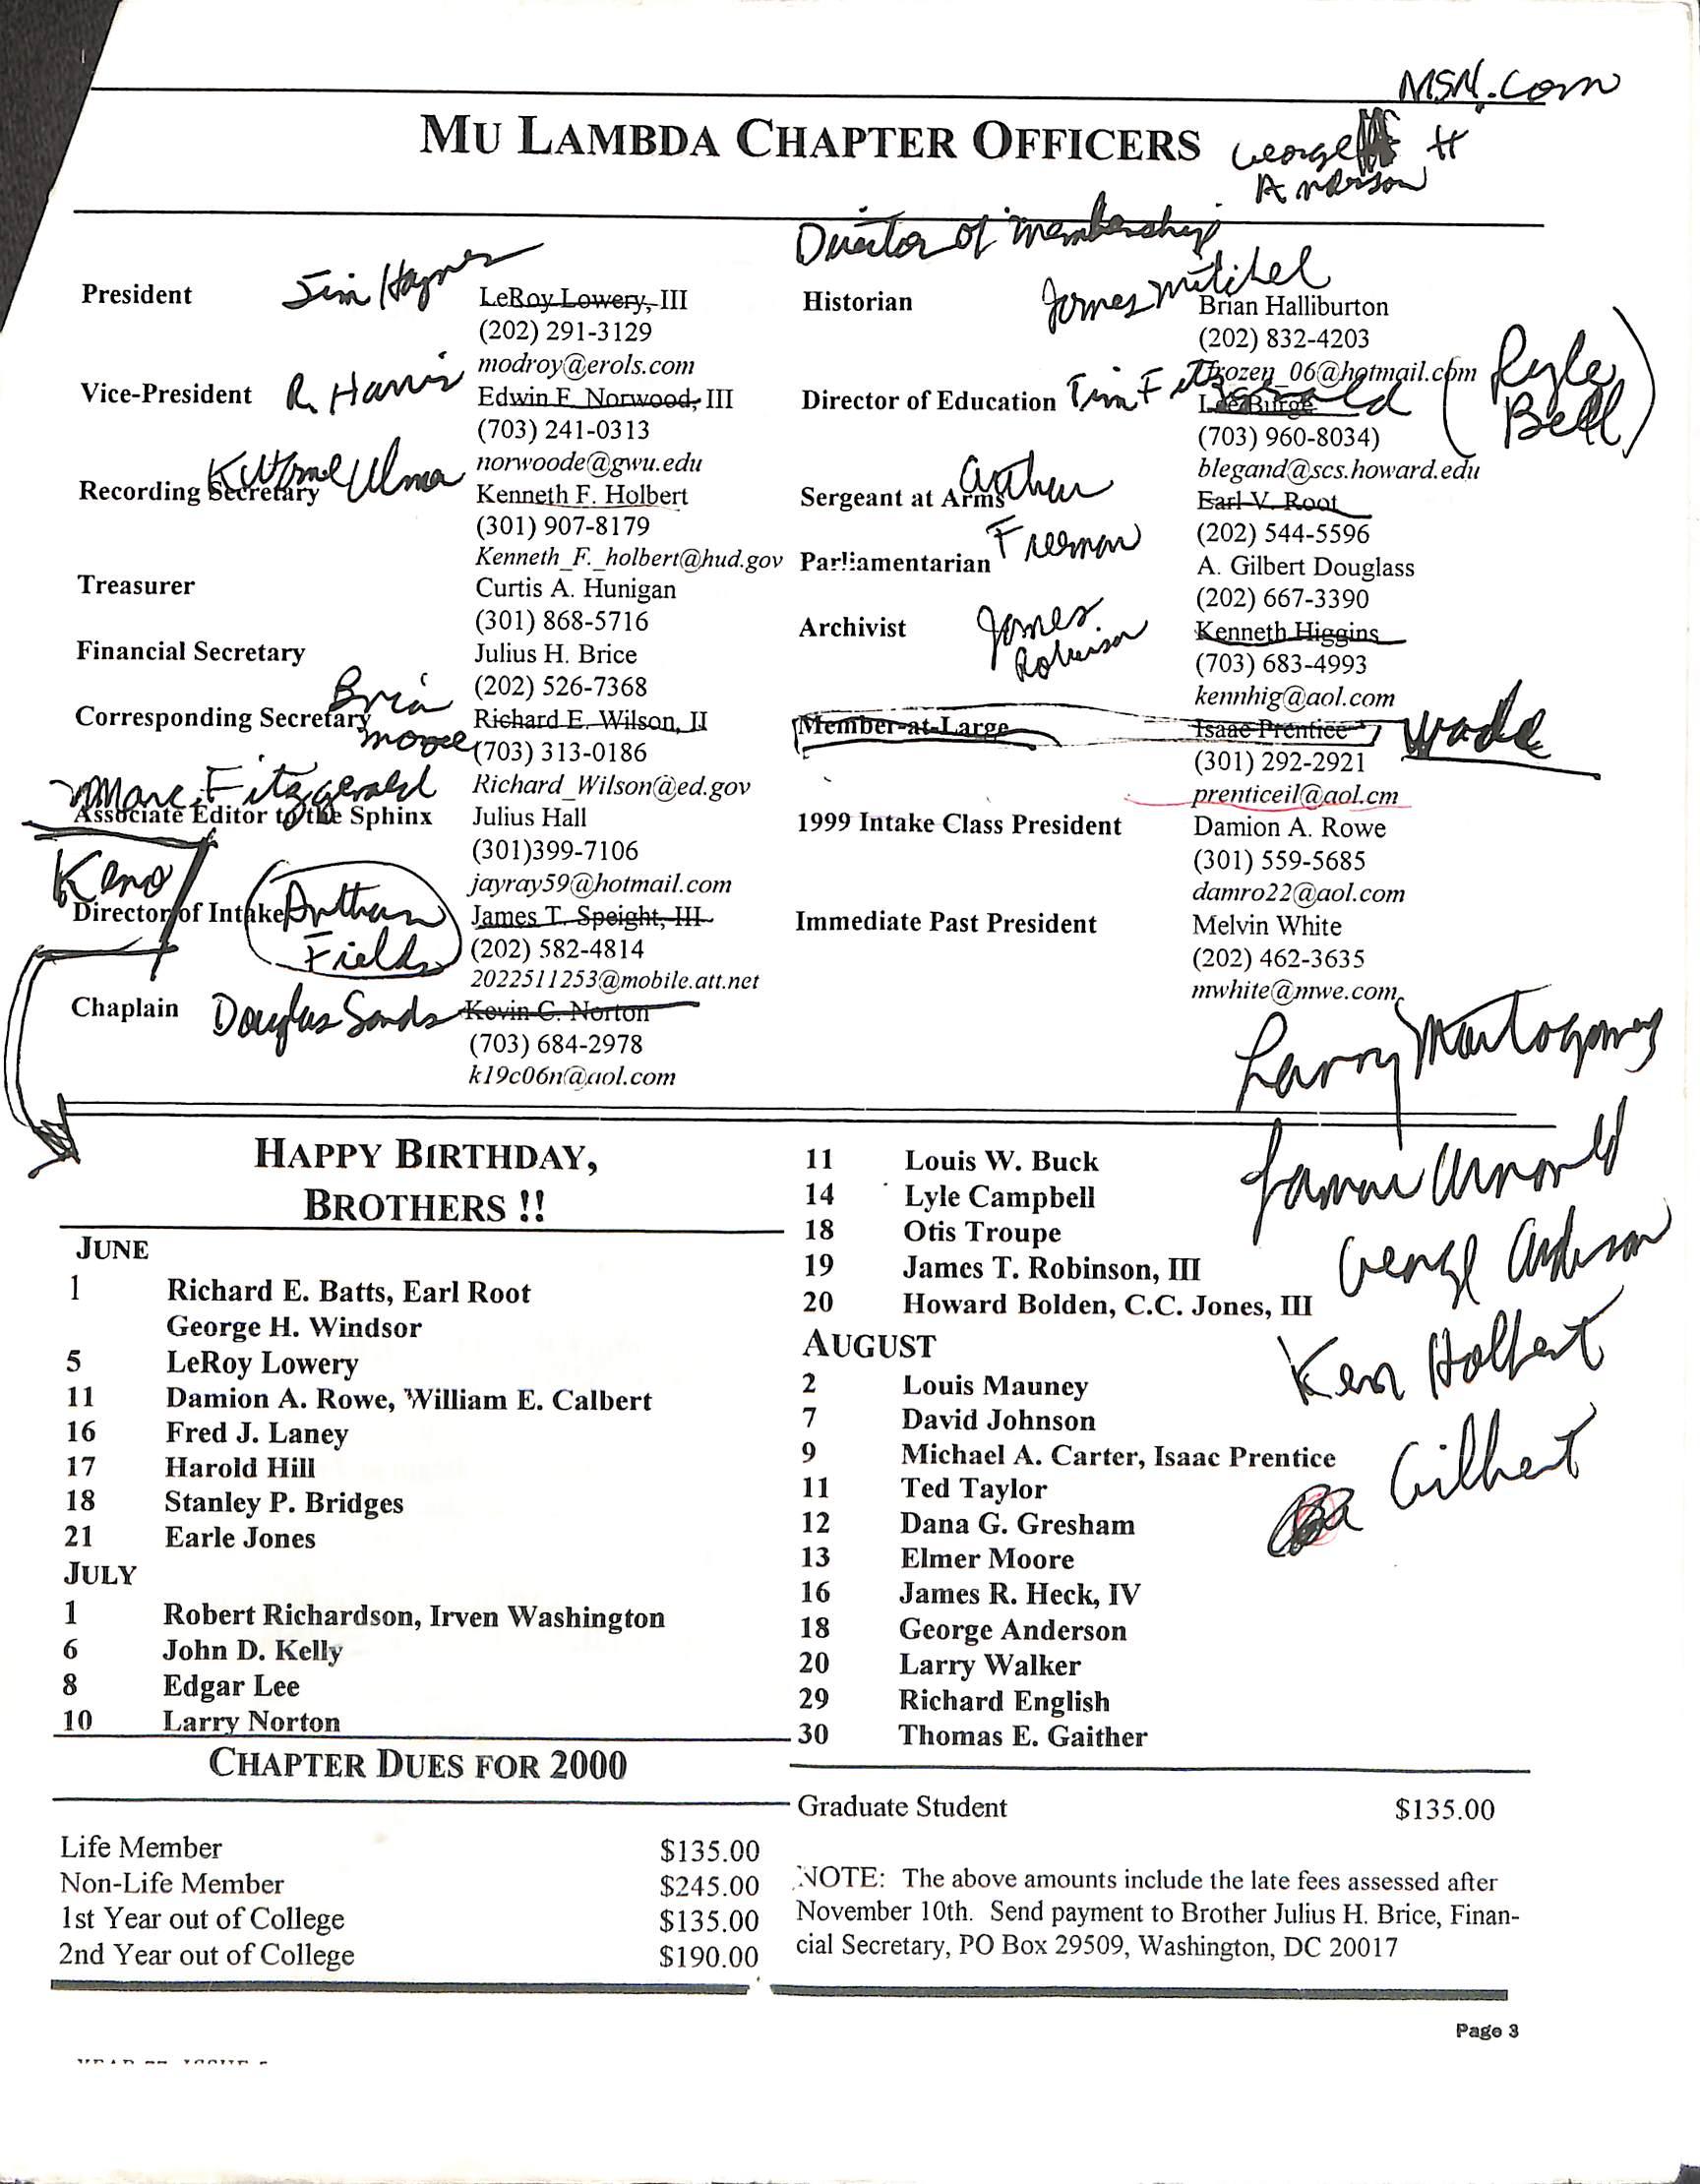 MSN.com
MU LAMBDA CHAPTER OFFICERS
George H
Anderson
Director of membership
President
Jim Haynes
LeRoy Lowery, III
(202) 291-3129
modroy@erols.com
Vice-President
R. Harris
Edwin F. Norwood, III
(703) 241-0313
norwoode@gwu.edu
Recording Secretary
Kenneth F. Holbert
(301) 907-8179
Kenneth_F._holbert@hud.gov
Treasurer
Curtis A. Hunigan
(301) 868-5716
Financial Secretary
Julius H. Brice
(202) 526-7368
Corresponding Secretary
Brian
moore
Richard E. Wilson, II
(703) 313-0186
Richard_Wilson@ed.gov
Marc Fitzgerald
Associate Editor to the Sphinx
Julius Hall
(301)399-7106
jayray59@hotmail.com
Keno
Director of Intake
Arthur
Fields
James T. Speight, III
(202) 582-4814
2022511253@mobile.att.net
Chaplain
Douglas Sands
Kevin C. Norton
(703) 684-2978
k19c06n@aol.com
Historian
James Mitchel
Brian Halliburton
(202) 832-4203
frozen_06@hotmail.com
Director of Education
Tim Fitzgerald
(Lyle
Bell)
Lee Burge
(703) 960-8034)
blegand@scs.howard.edu
Sergeant at Arms
Arthur
Freeman
Earl V. Root
(202) 544-5596
Parliamentarian
A. Gilbert Douglass
(202) 667-3390
Archivist
James
Robinson
Kenneth Higgins
(703) 683-4993
kennhig@aol.com
Member-at-Large
Isaac Prentice
Wade
(301) 292-2921
prenticeil@aol.cm
1999 Intake Class President
Damion A. Rowe
(301) 559-5685
damro22@aol.com
Immediate Past President
Melvin White
(202) 462-3635
mwhite@mwe.com
Larry
Arnold
George Anderson
Ken Holbert
Gilbert
HAPPY BIRTHDAY,
BROTHERS !!
JUNE
1 Richard E. Batts, Earl Root
George H. Windsor
5 LeRoy Lowery
11 Damion A. Rowe, William E. Calbert
16 Fred J. Laney
17 Harold Hill
18 Stanley P. Bridges
21 Earle Jones
JULY
1 Robert Richardson, Irven Washington
6 John D. Kelly
8 Edgar Lee
10 Larry Norton
11 Louis W. Buck
14 Lyle Campbell
18 Otis Troupe
19 James T. Robinson, III
20 Howard Bolden, C.C. Jones, III
AUGUST
2 Louis Mauney
7 David Johnson
9 Michael A. Carter, Isaac Prentice
11 Ted Taylor
12 Dana G. Gresham
13 Elmer Moore
16 James R. Heck, IV
18 George Anderson
20 Larry Walker
29 Richard English
30 Thomas E. Gaither
CHAPTER DUES FOR 2000
Life Member $135.00
Non-Life Member $245.00
1st Year out of College $135.00
2nd Year out of College $190.00
Graduate Student $135.00
NOTE: The above amounts include the late fees assessed after
November 10th. Send payment to Brother Julius H. Brice, Finan-
cial Secretary, PO Box 29509, Washington, DC 20017
Page 3